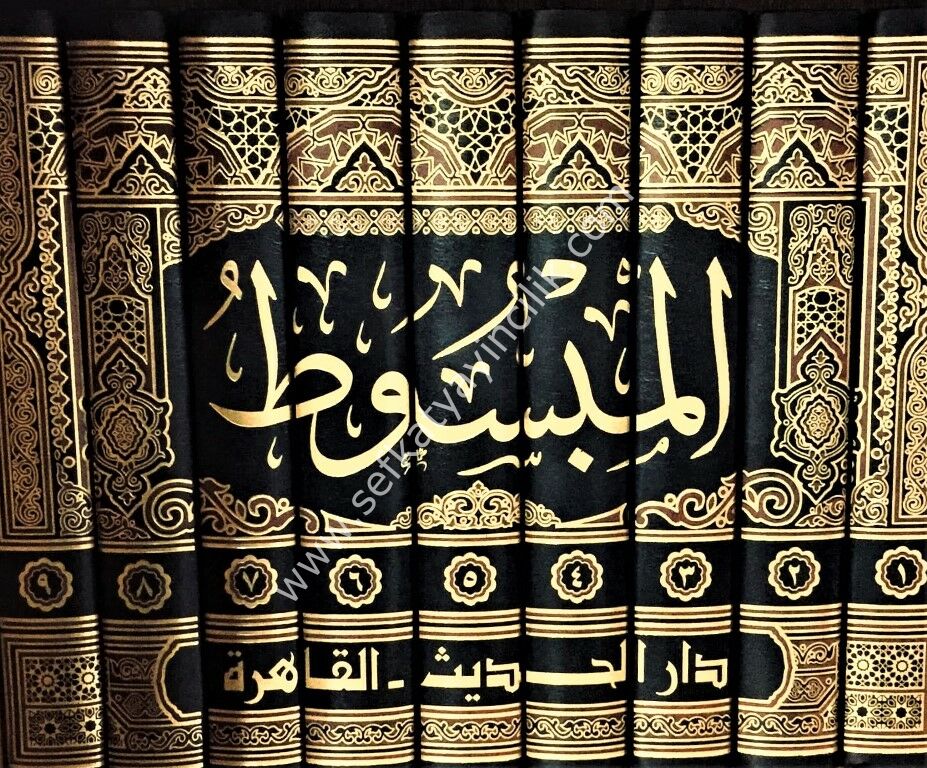 المبسوط
١ ٢ ٣ ٤ ٥ ٦ ٧ ٨ ٩
دار الحديث - القاهرة
www.setkatyayindilik.com